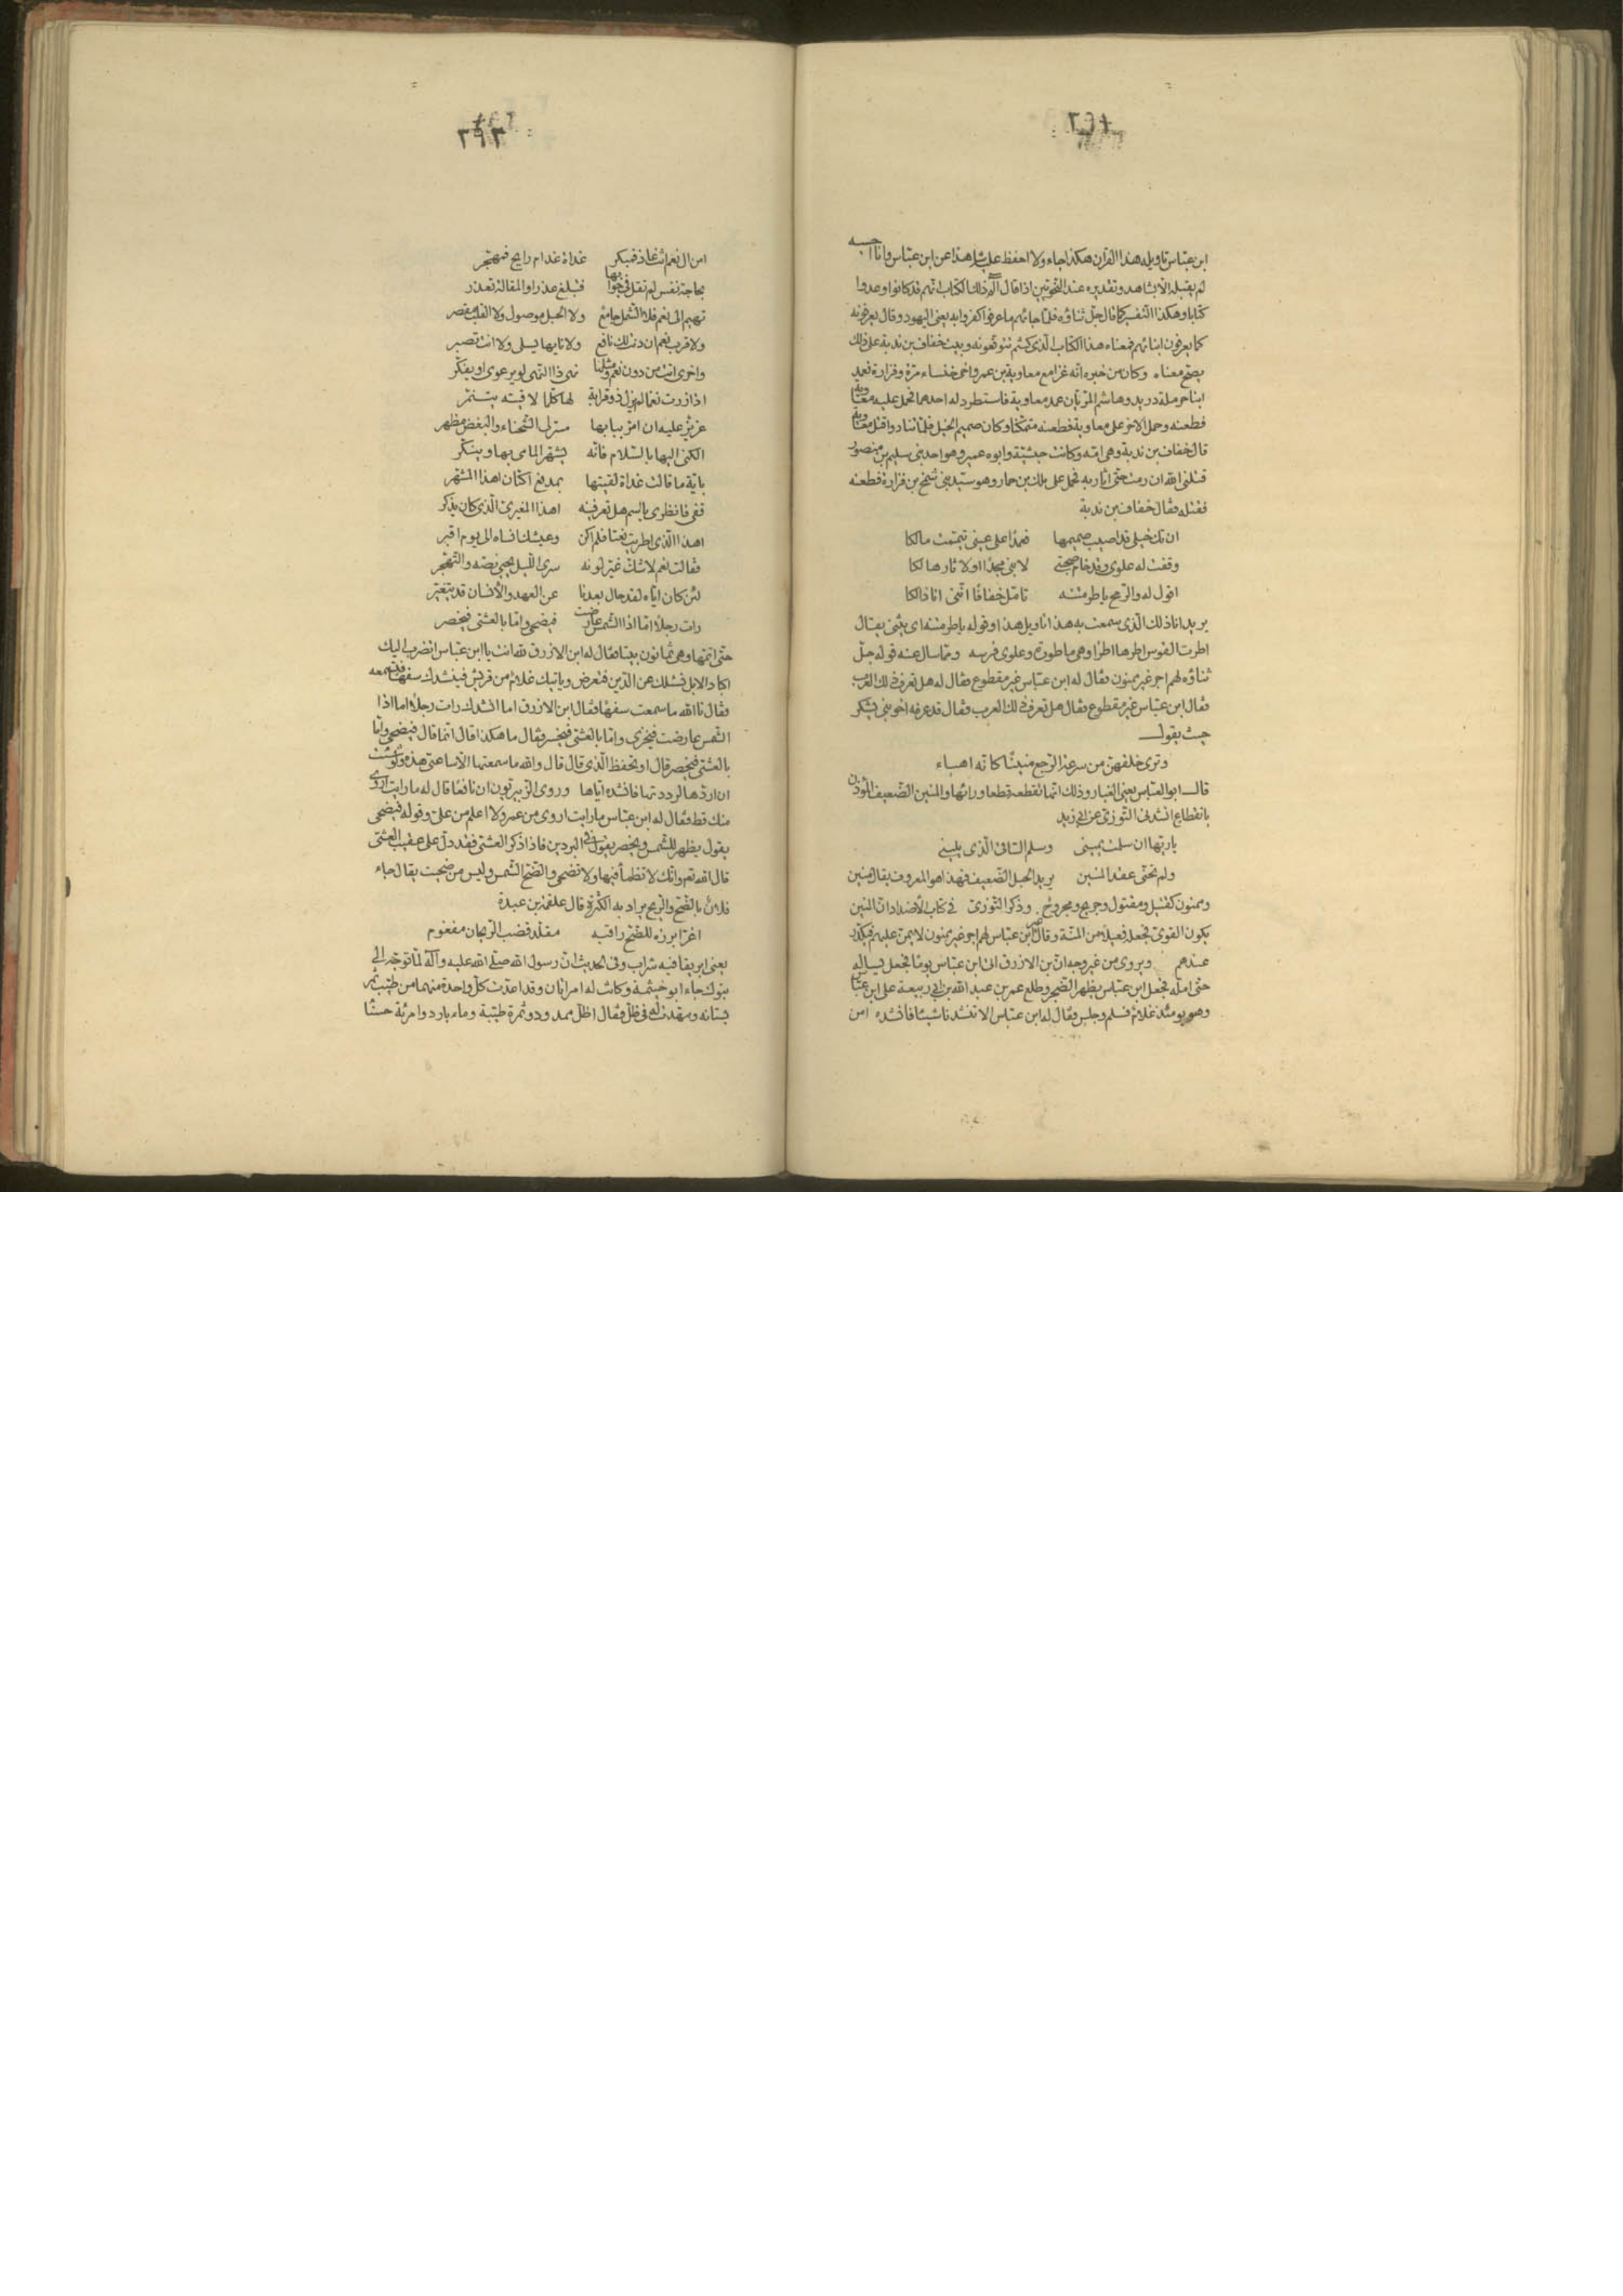 ٢٩٢
ابن عباس تاويله هذا القران هكذا جاء ولا احفظ عليه شاهدا عن ابن عباس وانا احسبه
لم يقبله الا بشاهد وتقديره عند النحويين اذا قال الم ذلك الكتاب انهم قد كانوا وعدوا
كتابا وهكذا التفسير كما قال جل ثناؤه فلما جائهم ما عرفوا كفروا به يعنى اليهود وقال يعرفونه
كما يعرفون ابنائهم فمعناه هذا الكتاب الذى كنتم تتوقعونه وبيت خفاف بن ندبة على ذلك
يصح معناه وكان من خبره انه غزا مع معاوية بن عمرو اخى خنساء مرة وفزارة فعمد
ابنا حرملة دريد وهاشم المريان عمد معاوية فاستطرد له احدهما فحمل عليه معاوية
فطعنه وحمل الاخر على معاوية فطعنه متمكنا وكان صميم الخيل فلما تنادوا قتل معاوية
قال خفاف بن ندبة وهى امه وكانت حبشية وابوه عمير وهو احد بنى سليم بن منصور
قتلنى الله ان رمت حتى اثار به فحمل على مالك بن حمار وهو سيد بنى شمخ بن فزارة فطعنه
فقتله فقال خفاف بن ندبة
ان تك خيلى قد اصيب صميمها فعمدا على عينى تيممت مالكا
وقفت له علوى وقد خام صحبتى لابنى مجدا اولا ثار هالكا
اقول له والرمح ياطر متنه تامل خفافا اننى انا ذالكا
يريد انا ذلك الذى سمعت به هذا تاويل هذا وقوله ياطر متنه اى يثنى يقال
اطرت القوس اطرها اطرا وهى ماطورة وعلوى فرسه ومما سال عنه قوله جل
ثناؤه لهم اجر غير ممنون فقال له ابن عباس غير مقطوع فقال له هل تعرف ذلك العرب
فقال ابن عباس غير مقطوع فقال هل تعرف ذلك العرب فقال قد عرفه اخو بنى يشكر
حيث يقول
وترى خلفهن من سرعة الرجع منينا كانه اهباء
قال ابو العباس يعنى الغبار وذلك انما تقطعه قطعا ورائها والمنين الضعيف الموذن
بانقطاع انشدنى التوزى عن ابى زيد
ياريها ان سلمت يمينى وسلم الساقى الذى يلينى
ولم تخنى عقد المنين يريد الحبل الضعيف فهذا هو المعروف يقال منين
وممنون كقتيل ومقتول وجريح ومجروح وذكر التوزى فى كتاب الاضداد ان المنين
يكون القوى تجعل فعيلا من المنة وقال غير ابن عباس لهم اجر غير ممنون لا يمن عليهم فيكدر
عندهم ويروى من غير وجه ان بن الازرق اتى ابن عباس يوما فجعل يساله
حتى امله فجعل ابن عباس يظهر الضجر وطلع عمر بن عبد الله بن ابى ربيعة على ابن عباس
وهو يومئذ غلام فسلم وجلس فقال له ابن عباس الا تنشدنا شيئا فانشده امن
٢٩٣
امن ال نعم انت غاد فمبكر غداة غد ام رايح فمهجر
بحاجة نفس لم تقل فى جوابها فتبلغ عذرا والمقالة تعذر
تهيم الى نعم فلا الشمل جامع ولا الحبل موصول ولا القلب مقصر
ولا قرب نعم ان دنت لك نافع ولا نايها يسلى ولا انت تصبر
واخرى اتت من دون نعم ومثلها نهى ذا النهى لو يرعوى او يفكر
اذا زرت نعما لم يزل ذو قرابة لها كلما لاقيته يتنمر
عزيز عليه ان امر ببابها مسر لى الشحناء والبغض مظهر
الكنى اليها بالسلام فانه يشهر المامى بها وينكر
باية ما قالت غداة لقيتها بمدفع اكنان اهذا المشهر
قفى فانظرى يا اسم هل تعرفينه اهذا المغيرى الذى كان يذكر
اهذا الذى اطريت نعتا فلم اكن وعيشك انساه الى يوم اقبر
فقالت نعم لا شك غير لونه سرى الليل يحيى نصه والتهجر
لئن كان اياه لقد حال بعدنا عن العهد والانسان قد يتغير
رات رجلا اما اذا الشمس عارضت فيضحى واما بالعشى فيخصر
حتى اتمها وهى ثمانون بيتا فقال له ابن الازرق لله انت يا ابن عباس انضرب اليك
اكباد الابل نسئلك عن الدين فتعرض وياتيك غلام من قريش فينشدك سفها فتسمعه
فقال تالله ما سمعت سفها فقال ابن الازرق اما انشدك رات رجلا اما اذا
الشمس عارضت فيخزى واما بالعشى فيخسر فقال ما هكذا قال انما قال فيضحى واما
بالعشى فيخصر قال او تحفظ الذى قال قال والله ما سمعتها الا ساعتى هذه ولو شئت
ان اردها لرددتها فانشده اياها وروى الزبيريون ان نافعا قال له ما رايت اروى
منك قط فقال له ابن عباس ما رايت اروى من عمر ولا اعلم من على وقوله فيضحى
يقول يظهر للشمس ويخصر يقول فى البردين فاذا ذكر العشى فقد دل على عقيب العشى
قال الله تعم وانك لا تظمأ فيها ولا تضحى والضح الشمس وليس من ضحيت يقال جاء
فلان بالضح والريح يراد به الكثرة قال علقمة بن عبدة
اغر ابرزه للضح راقبه مقلد قضب الريحان مفغوم
يعنى ابريقا فيه شراب وفى الحديث ان رسول الله صلى الله عليه وآله لما توجه الى
تبوك جاء ابو خيثمة وكانت له امراتان وقد اعدت كل واحدة منهما من طيب ثمر
بستانه ومهدت له فى ظل فقال اظل ممدود وثمرة طيبة وماء بارد وامرئة حسنا